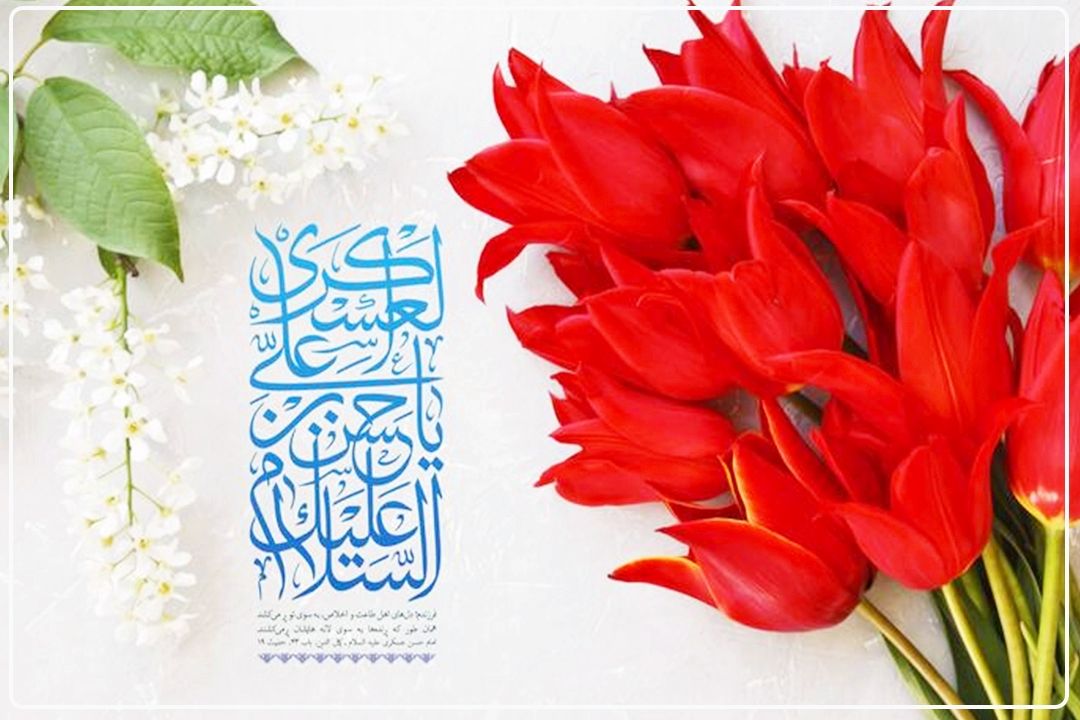 السلام علیک
یا حسن بن علی
العسکری
فرزندم! دل‌های اهل طاعت و اخلاص، به سوی تو پر می‌کشند
همان طور که پرنده‌ها به سوی لانه هایشان پر می‌کشند
امام حسن عسکری علیه السلام ـ کمال الدین، باب ۴۳، حدیث ۱۹